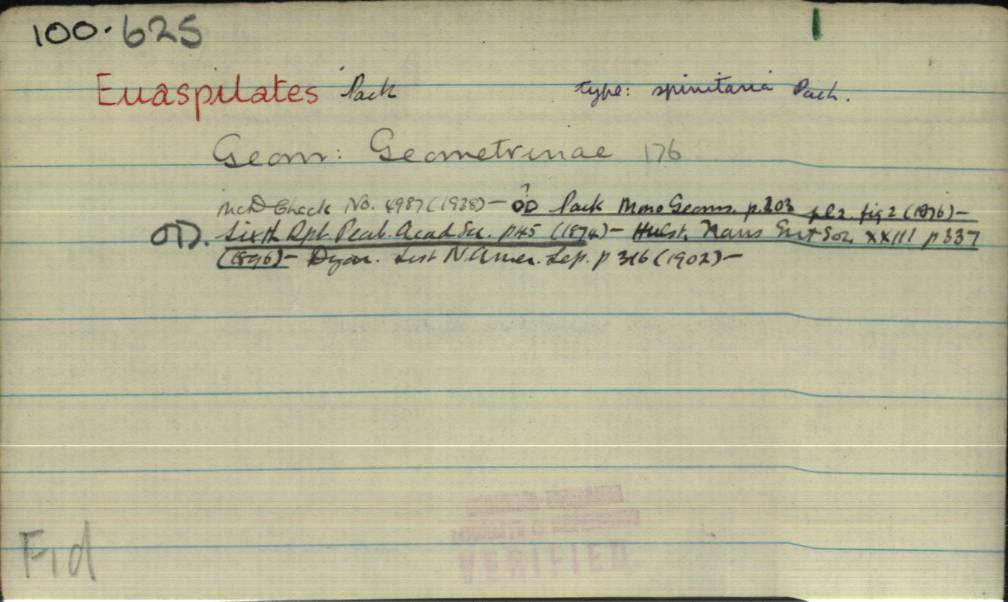 100.625
Euaspilates Pack type: spinitaria Pack.
Geom: Geometrinae 176
McD Check No. 4987 (1938) – ? OD Pack Mono Geom. p.203 pl 2. fig 2 (1876) –
OD. Sixth Rpt. Peab. Acad Sci. p45 (1874) – Hulst. Trans Ent Soc XXIII p 337
(1896) – Dyar. List N. Amer. Lep. p 316 (1902) –
VERIFIED
Fid